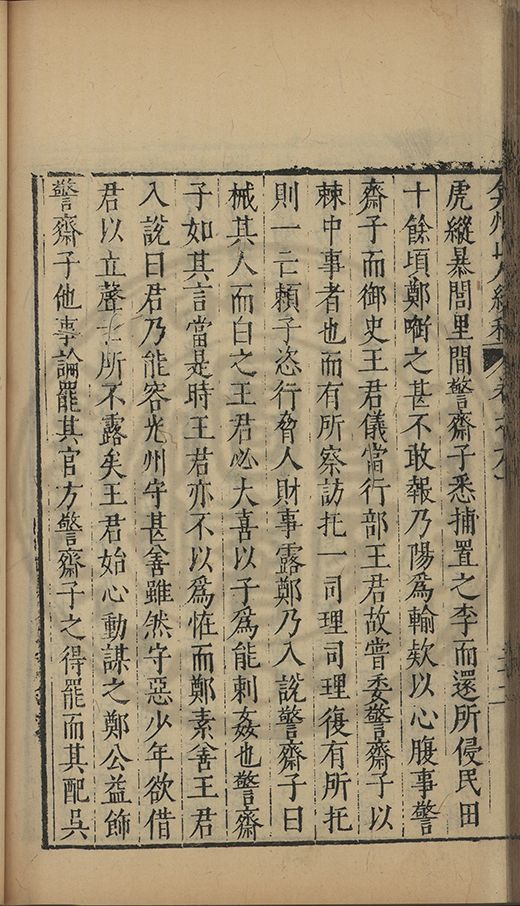 弇州山人續稿
虎縱暴閭里間警齋子悉捕置之李而還所侵民田
十餘頃鄭啣之甚不敢報乃陽爲輸欵以心腹事警
齋子而御史王君儀當行部王君故嘗委警齋子以
棘中事者也而有所察訪托一司理司理復有所托
則一亡賴子恣行脅人財事露鄭乃入說警齋子曰
械其人而白之王君必大喜以子爲能刺姦也警齋
子如其言當是時王君亦不以爲恠而鄭素善王君
入說曰君乃能容光州守甚善雖然守惡少年欲借
君以立聲君所不露矣王君始心動謀之鄭公益飾
警齋子他事論罷其官方警齋子之得罷而其配吳